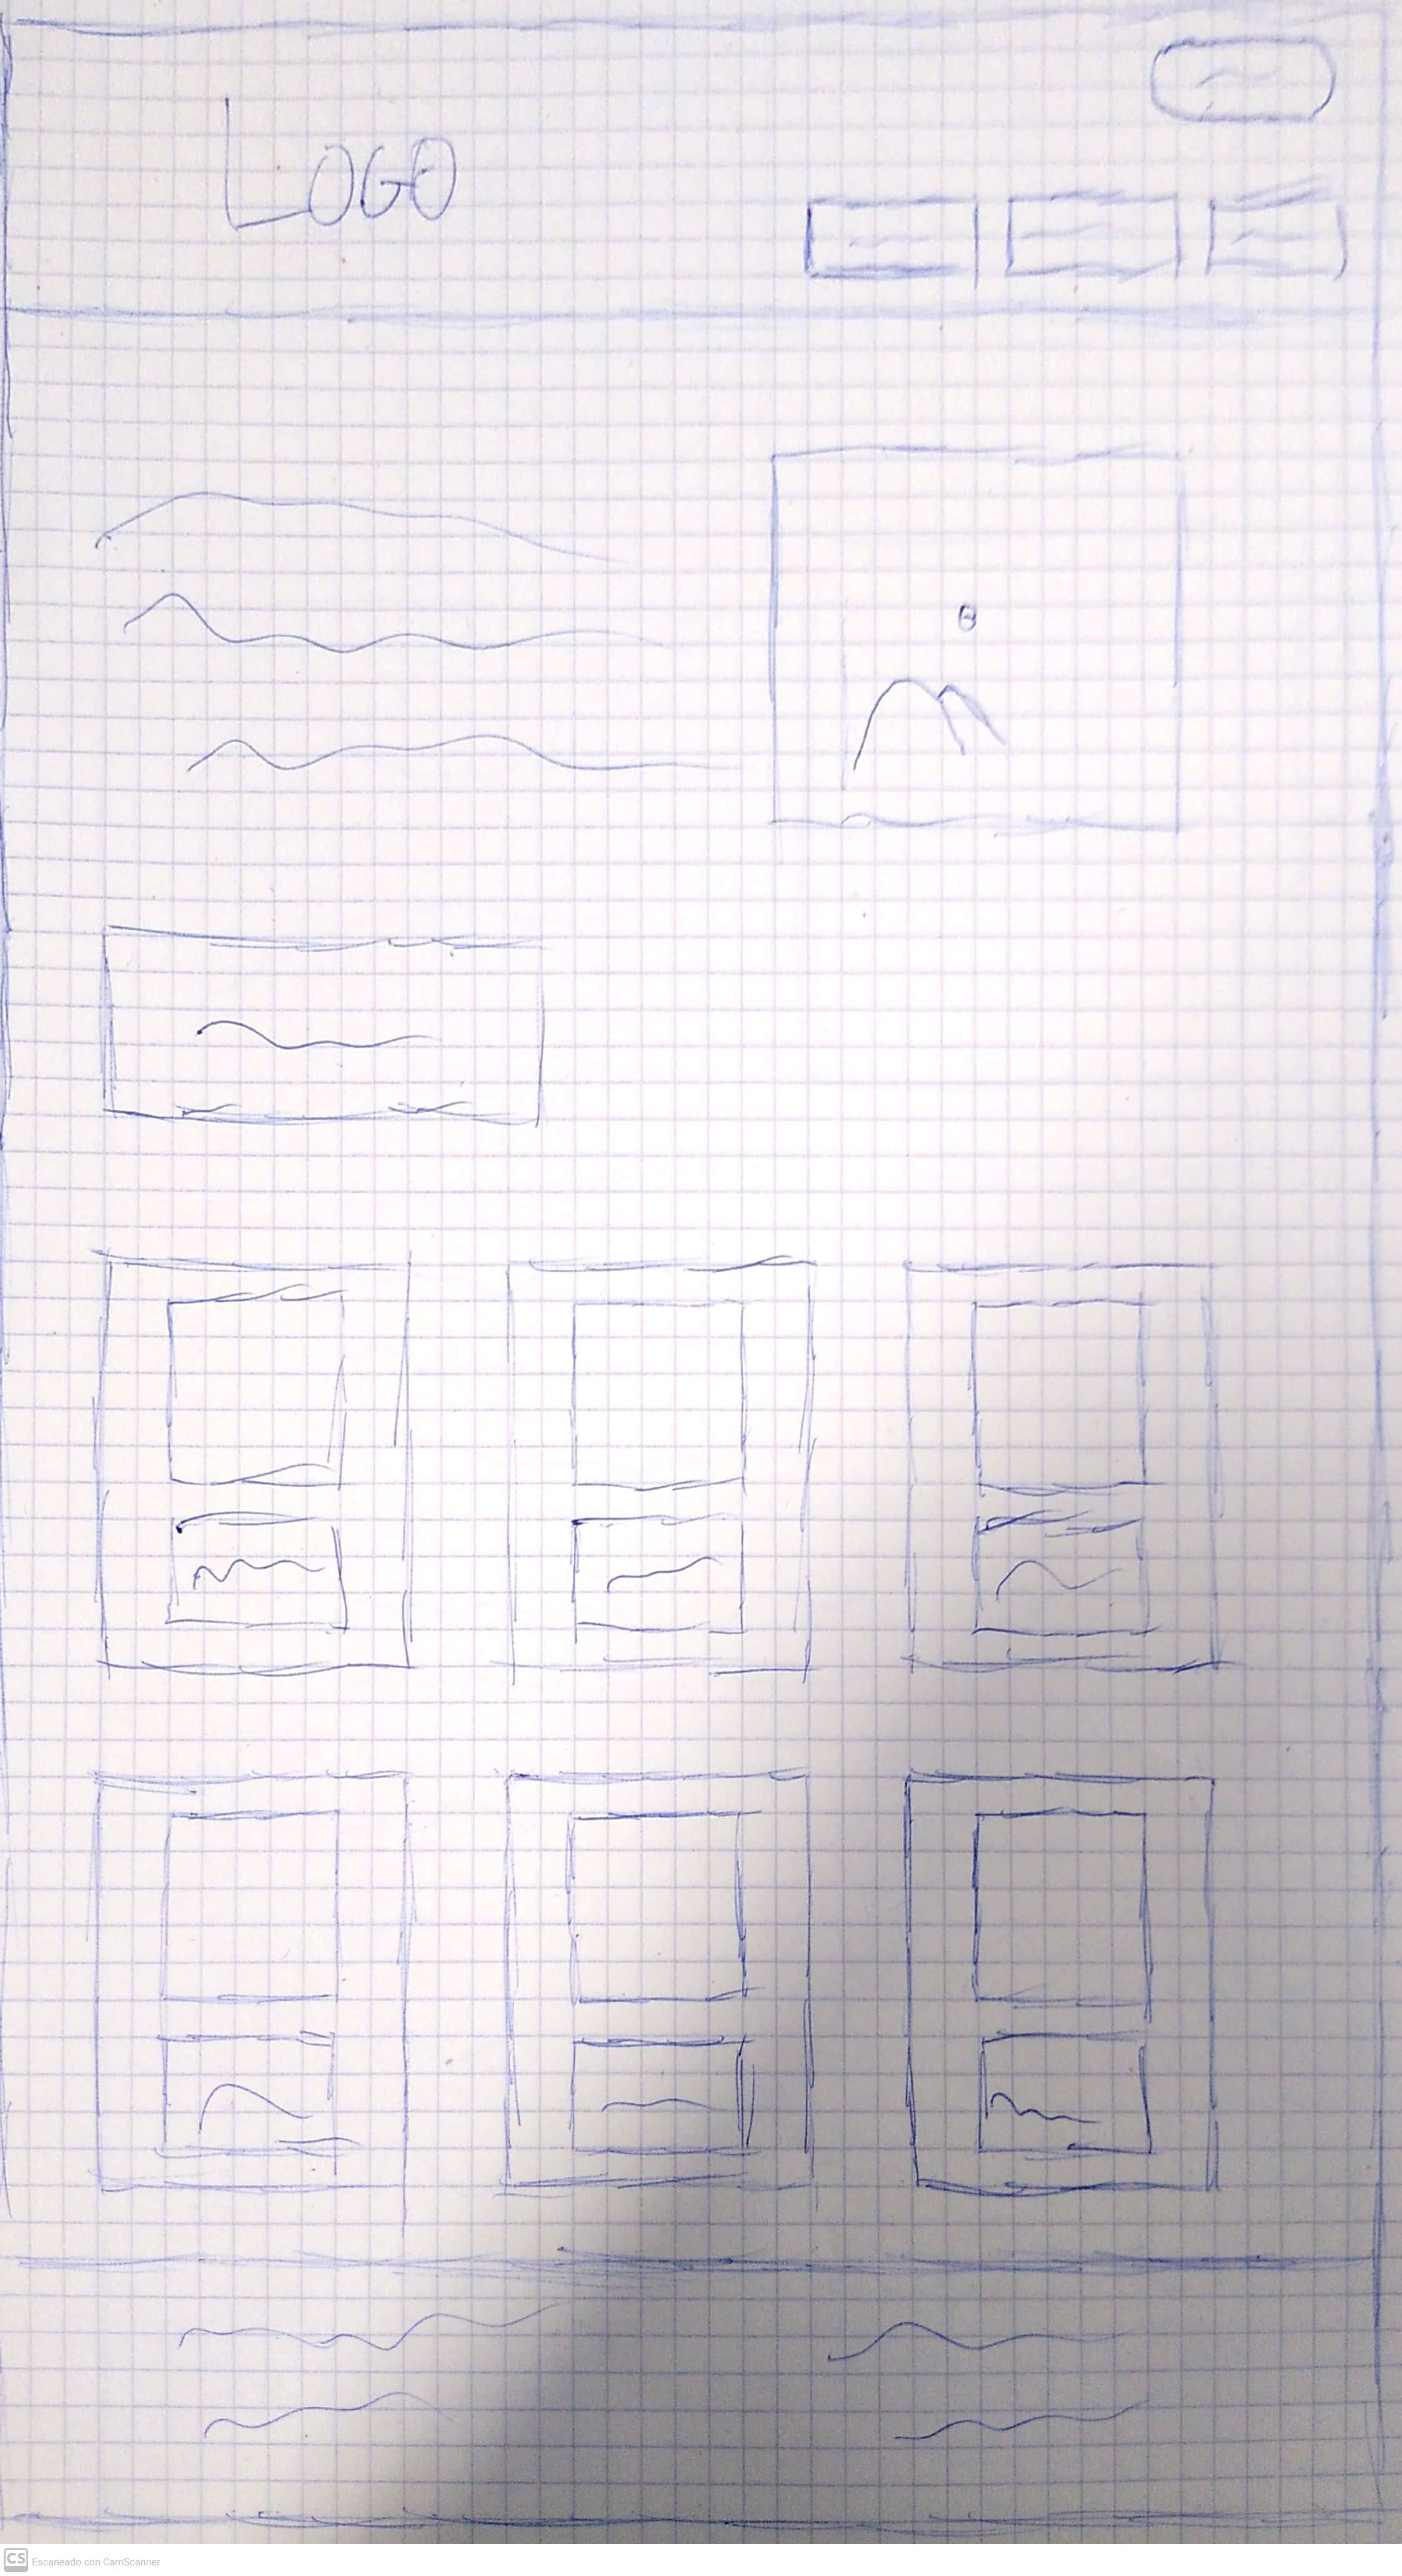 LOGO
CS Escaneado con CamScanner